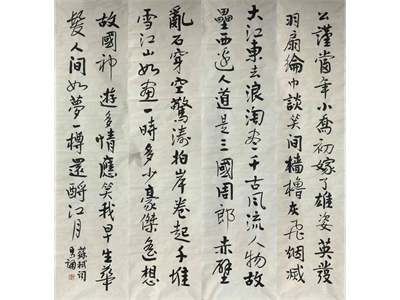 公瑾當年小喬初嫁了雄姿英發
羽扇綸巾談笑間檣櫓灰飛烟滅
大江東去浪淘盡千古風流人物故
壘西邊人道是三國周郎赤壁
亂石穿空驚濤拍岸卷起千堆
雪江山如畫一時多少豪傑遙想
故國神遊多情應笑我早生華
髮人間如夢一樽還酹江月
蘇軾詞